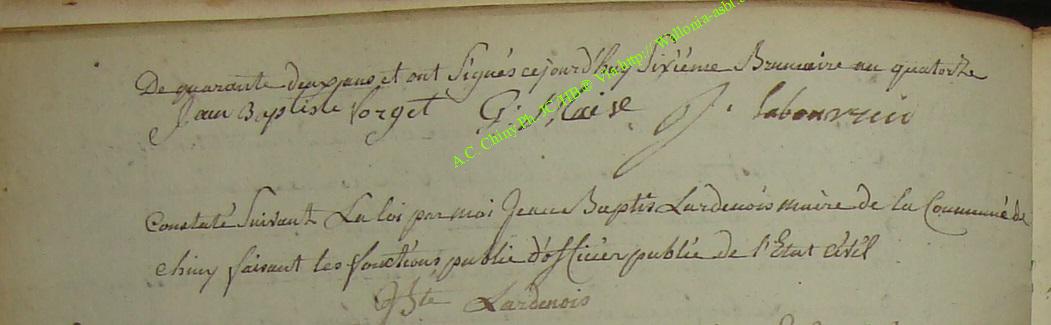 De quarante deux ans et ont Signés cejourd'huy Sixième Brumaire an quatorze
Jean Baptiste forget G: J: labouverie
Constaté Suivant La loi par moi Jean Baptis Lardenois maire de la Commune de
chiny faisant les fonctions publié d'officier publié de l'Etat civil
JBte Lardenois
A.C. Chiny Ph. JCHB © Via http:// Wallonia-asbl.